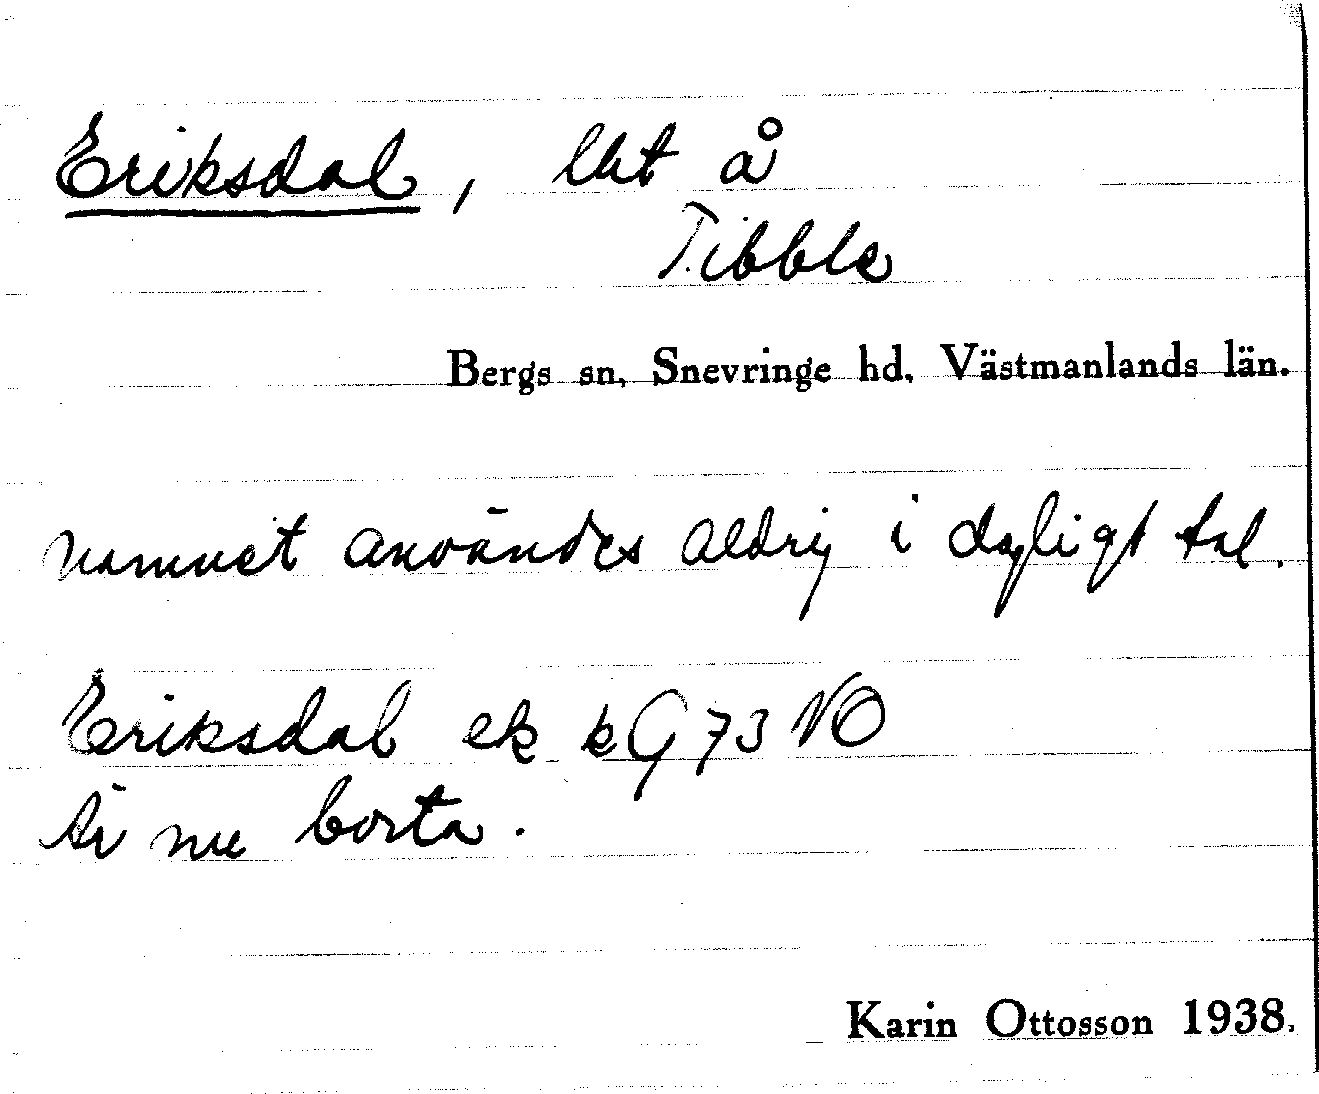 Eriksdal, lht å
Tibble
Bergs sn, Snevringe hd, Västmanlands län.
namnet användes aldrig i dagligt tal.
Eriksdal ek kG73 NO
Är nu borta.
Karin Ottosson 1938.